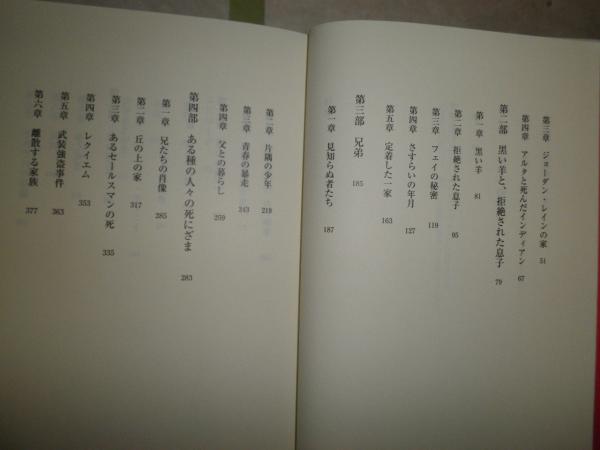 第三章 ジョーダン・レインの家 51
第四章 アルタと死んだインディアン 67
第二部 黒い羊と、拒絶された息子 79
第一章 黒い羊 81
第二章 拒絶された息子 95
第三章 フェイの秘密 119
第四章 さすらいの年月 127
第五章 定着した一家 163
第三部 兄弟 185
第一章 見知らぬ者たち 187
第二章 片隅の少年 219
第三章 青春の暴走 243
第四章 父との暮らし 259
第四部 ある種の人々の死にざま 283
第一章 兄たちの肖像 285
第二章 丘の上の家 317
第三章 あるセールスマンの死 335
第四章 レクイエム 353
第五章 武装強盗事件 363
第六章 離散する家族 377